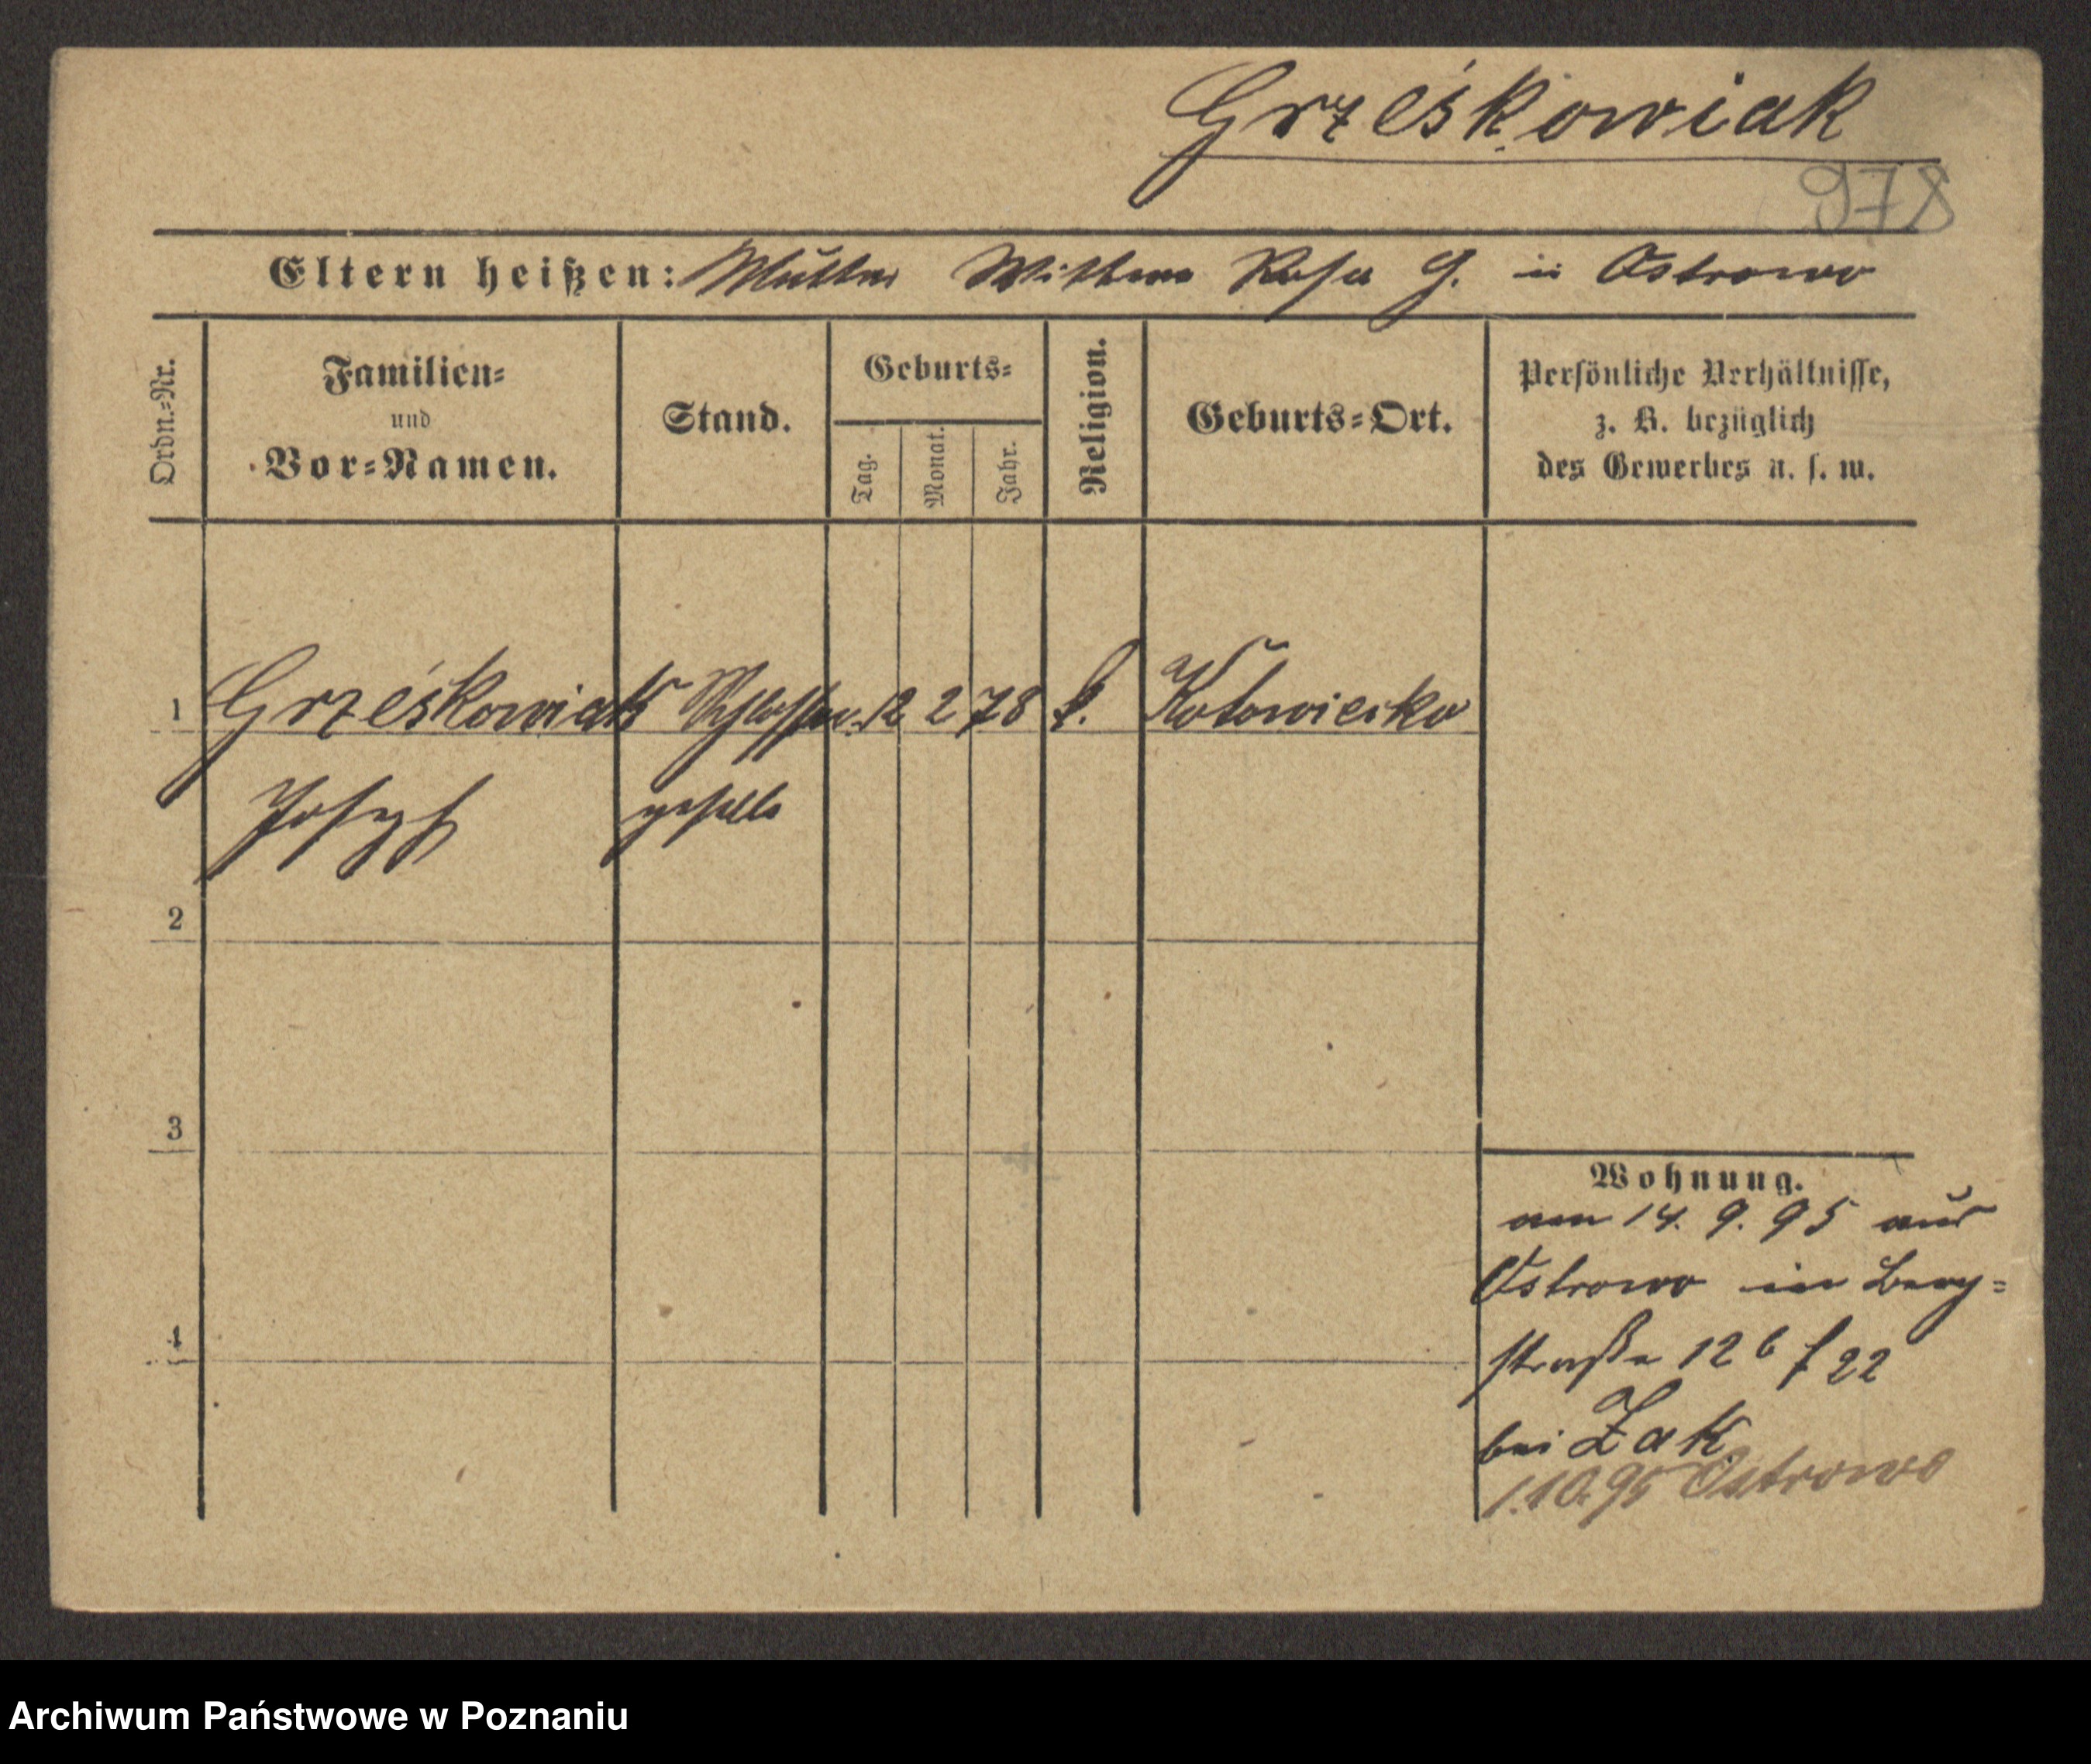 Grześkowiak
978
Eltern heißen: Mutter Wittwe Rosa G. in Ostrowo
Ordn.-Nr.
Familien-
und
Vor-Namen.
Stand.
Geburts-
Tag.
Monat.
Jahr.
Religion.
Geburts-Ort.
Persönliche Verhältnisse,
z. B. bezüglich
des Gewerbes u. s. w.
1 Grześkowiak Schlosser- 12 2 78 k. Kotowiecko
Joseph geselle
2
3
4
Wohnung.
am 14. 9. 95 aus
Ostrowo in Berg-
straße 12 b f 22
bei Zak
1.10.95 Ostrowo
Archiwum Państwowe w Poznaniu